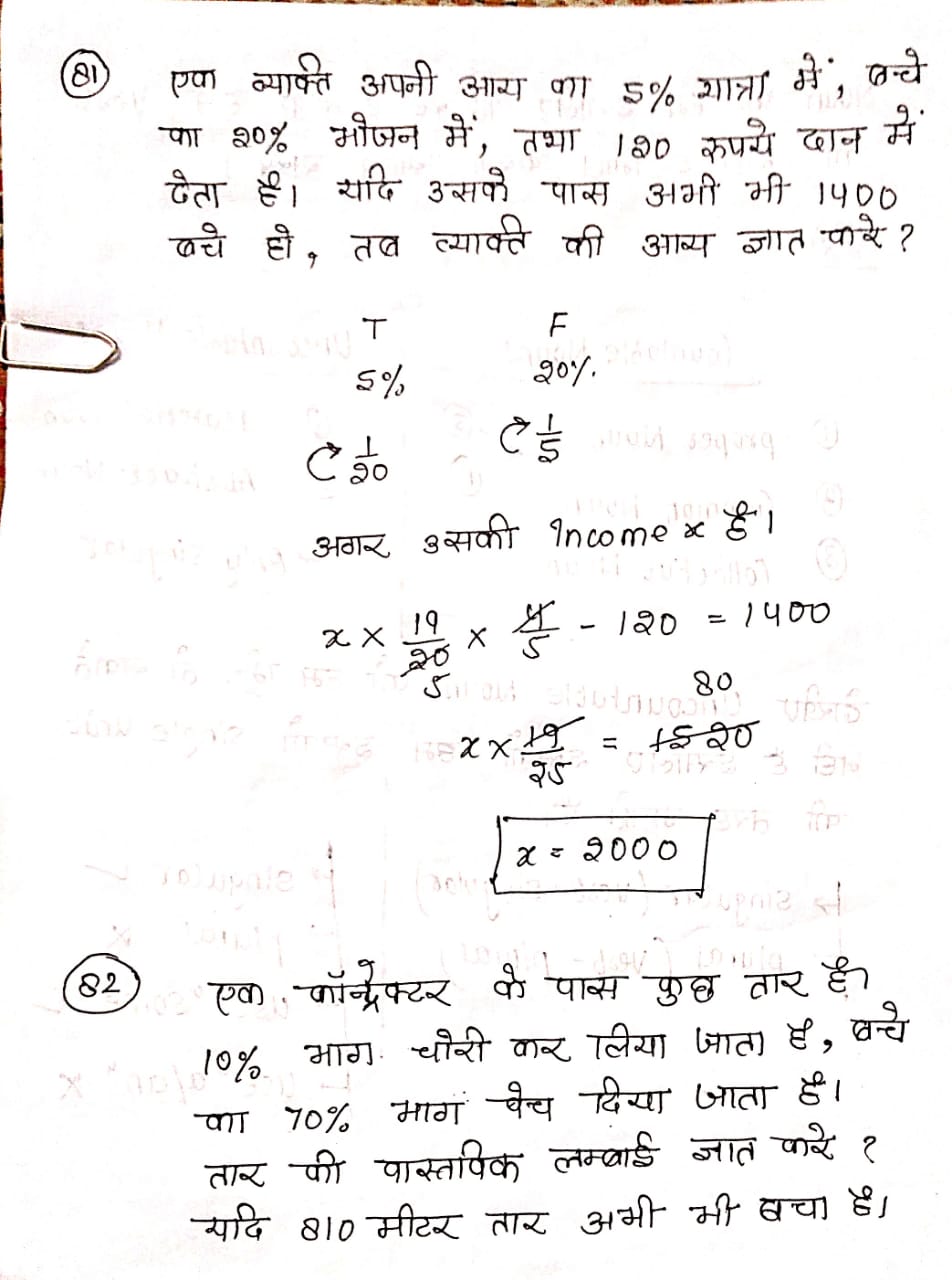 81 एक व्यक्ति अपनी आय का 5% यात्रा में, बचे
का 20% भोजन में, तथा 120 रुपये दान में
देता है। यदि उसके पास अभी भी 1400
बचे हो, तब व्यक्ति की आय ज्ञात करे?
T F
5% 20%.
1/20 1/5
अगर उसकी Income x है।
x × 19/20 × 4/5 - 120 = 1400
5 80
x × 19/25 = 1520
x = 2000
82 एक कॉन्ट्रेक्टर के पास कुछ तार है।
10% भाग चोरी कर लिया जाता है, बचे
का 70% भाग बेच दिया जाता है।
तार की वास्तविक लम्बाई ज्ञात करे?
यदि 810 मीटर तार अभी भी बचा है।